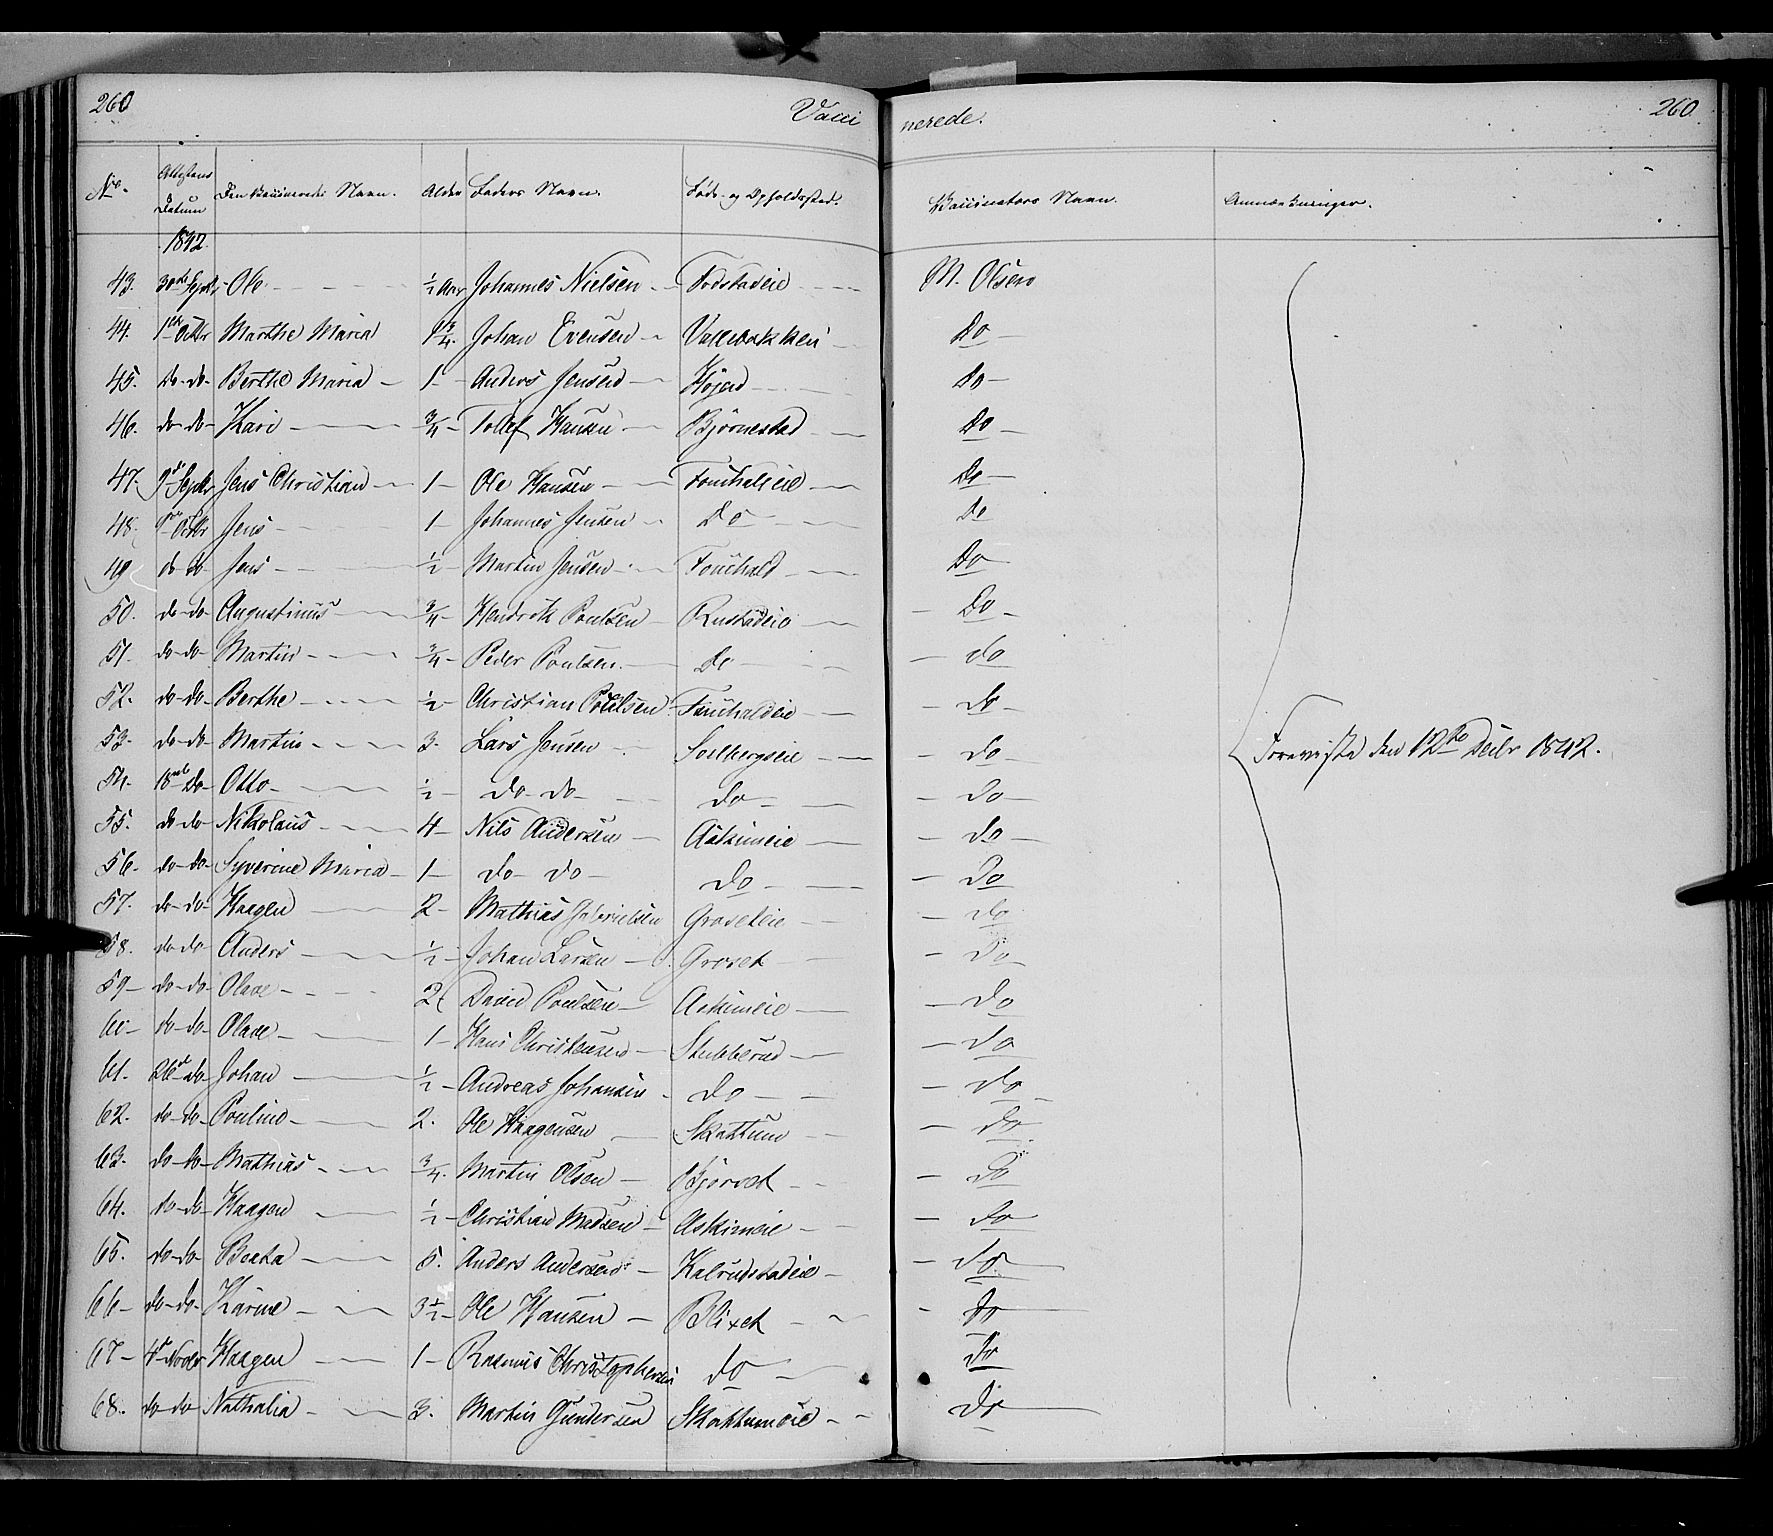 260 Vacci nerede. 260.
No. Attestens Datum Den Vaccineredes Navn. Alder Faders Navn. Føde- og Opholdssted. Vaccinators Navn. Anmærkninger.
1842.
43. 30te Septr Ole ½ Aar Johannes Nielsen Fodstadeie M. Olsen
44. 1ste Octbr Marthe Maria 1¾ Johan Evensen Do
45. Do-do Berthe Maria 1 Anders Jensen Do
46. do-do Kari ¾ Tollef Hansen Bjørnestad Do
47. Septr Jens Christian 1 Ole Hansen Do
48. Octbr Jens 1 Johannes Jensen Do Do
49 do-do Jens ½ Martin Jensen Do
50. do-do Augustinus ¾ Hendrik Poulsen Rustadeie Do
51. do-do Martin ¾ Peder Poulsen Do do
52. do-do Berthe ½ Christian Poulsen do
53. do-do Martin 3. Lars Jensen Solbergseie do Foreviste den 12te Decbr 1842.
54. 18de Do Otto ½ do-do do do
55. do do Nikolaus 4 Nils Andersen Askimeie do
56. do-do Syverine Maria 1 do do do do
57. do-do Haagen 2 Mathias Gabrielsen Groseteie do
58. do-do Anders ½ Johan Larsen Groset Do
59 do-do Olave 2 David Poulsen Askimeie do
60 do-do Olave 1 Hans Christensen Stubberud do
61. 26de do Johan ½ Andreas Johansen do do
62. do-do Pouline 2. Ole Haagensen Skattum do
63. do-do Mathias ¾ Martin Olsen do
64. do-do Haagen ½ Christian Madsen Askimeie do
65. do-do Beata 5. Anders Andersen Kalrudstadeie do
66 do-do Karine 3½ Ole Hansen Blixet do
67 4de Novbr Haagen 1 Rasmus Christophersen do do
68. do-do Nathalia 3. Martin Gundersen Skattumeie do